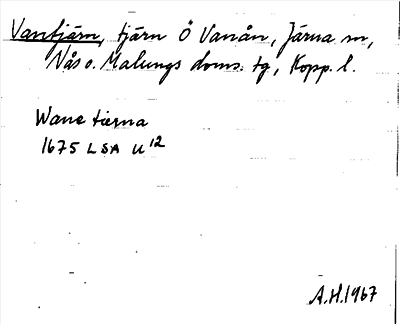 Vantjärn, tjärn Ö Vanån, Järna sn,
Nås o. Malungs doms. tg, Kopp. l.
Wane tierna
1675 LSA U12
A.H. 1967